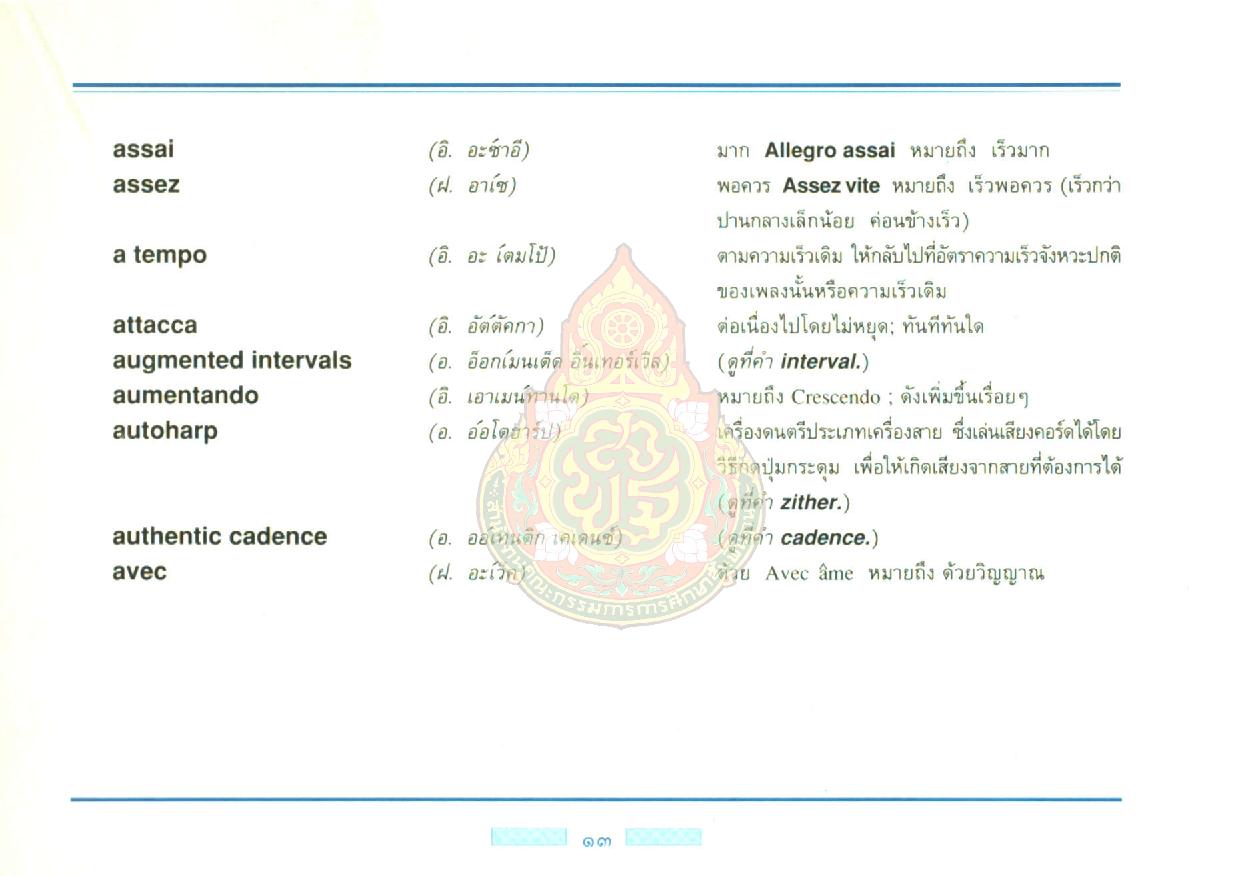 assai (อิ. อะซ์าอี) มาก Allegro assai หมายถึง เร็วมาก
assez (ฝ. อาเ์ซ) พอควร Assez vite หมายถึง เร็วพอควร (เร็วกว่า
ปานกลางเล็กน้อย ค่อนข้างเร็ว)
a tempo (อิ. อะ เ์ตมโป้) ตามความเร็วเดิม ให้กลับไปที่อัตราความเร็วจังหวะปกติ
ของเพลงนั้นหรือความเร็วเดิม
attacca (อิ. อัต์ตัคกา) ต่อเนื่องไปโดยไม่หยุด; ทันทีทันใด
augmented intervals (อ. อ็อกเ์มนเต็ด อิ์นเทอร์เวิล) (ดูที่คำ interval.)
aumentando (อิ. เอาเมนท์านโด) หมายถึง Crescendo ; ดังเพิ่มขึ้นเรื่อยๆ
autoharp (อ. อ์อโตฮาร์ป) เครื่องดนตรีประเภทเครื่องสาย ซึ่งเล่นเสียงคอร์ดได้โดย
วิธีกดปุ่มกระดุม เพื่อให้เกิดเสียงจากสายที่ต้องการได้
(ดูที่คำ zither.)
authentic cadence (อ. ออเ์ทนติก เคเดนซ์) (ดูที่คำ cadence.)
avec (ฝ. อะเว์ค) ด้วย Avec âme หมายถึง ด้วยวิญญาณ
สำนักงานคณะกรรมการการศึกษาขั้นพื้นฐาน
๑๓